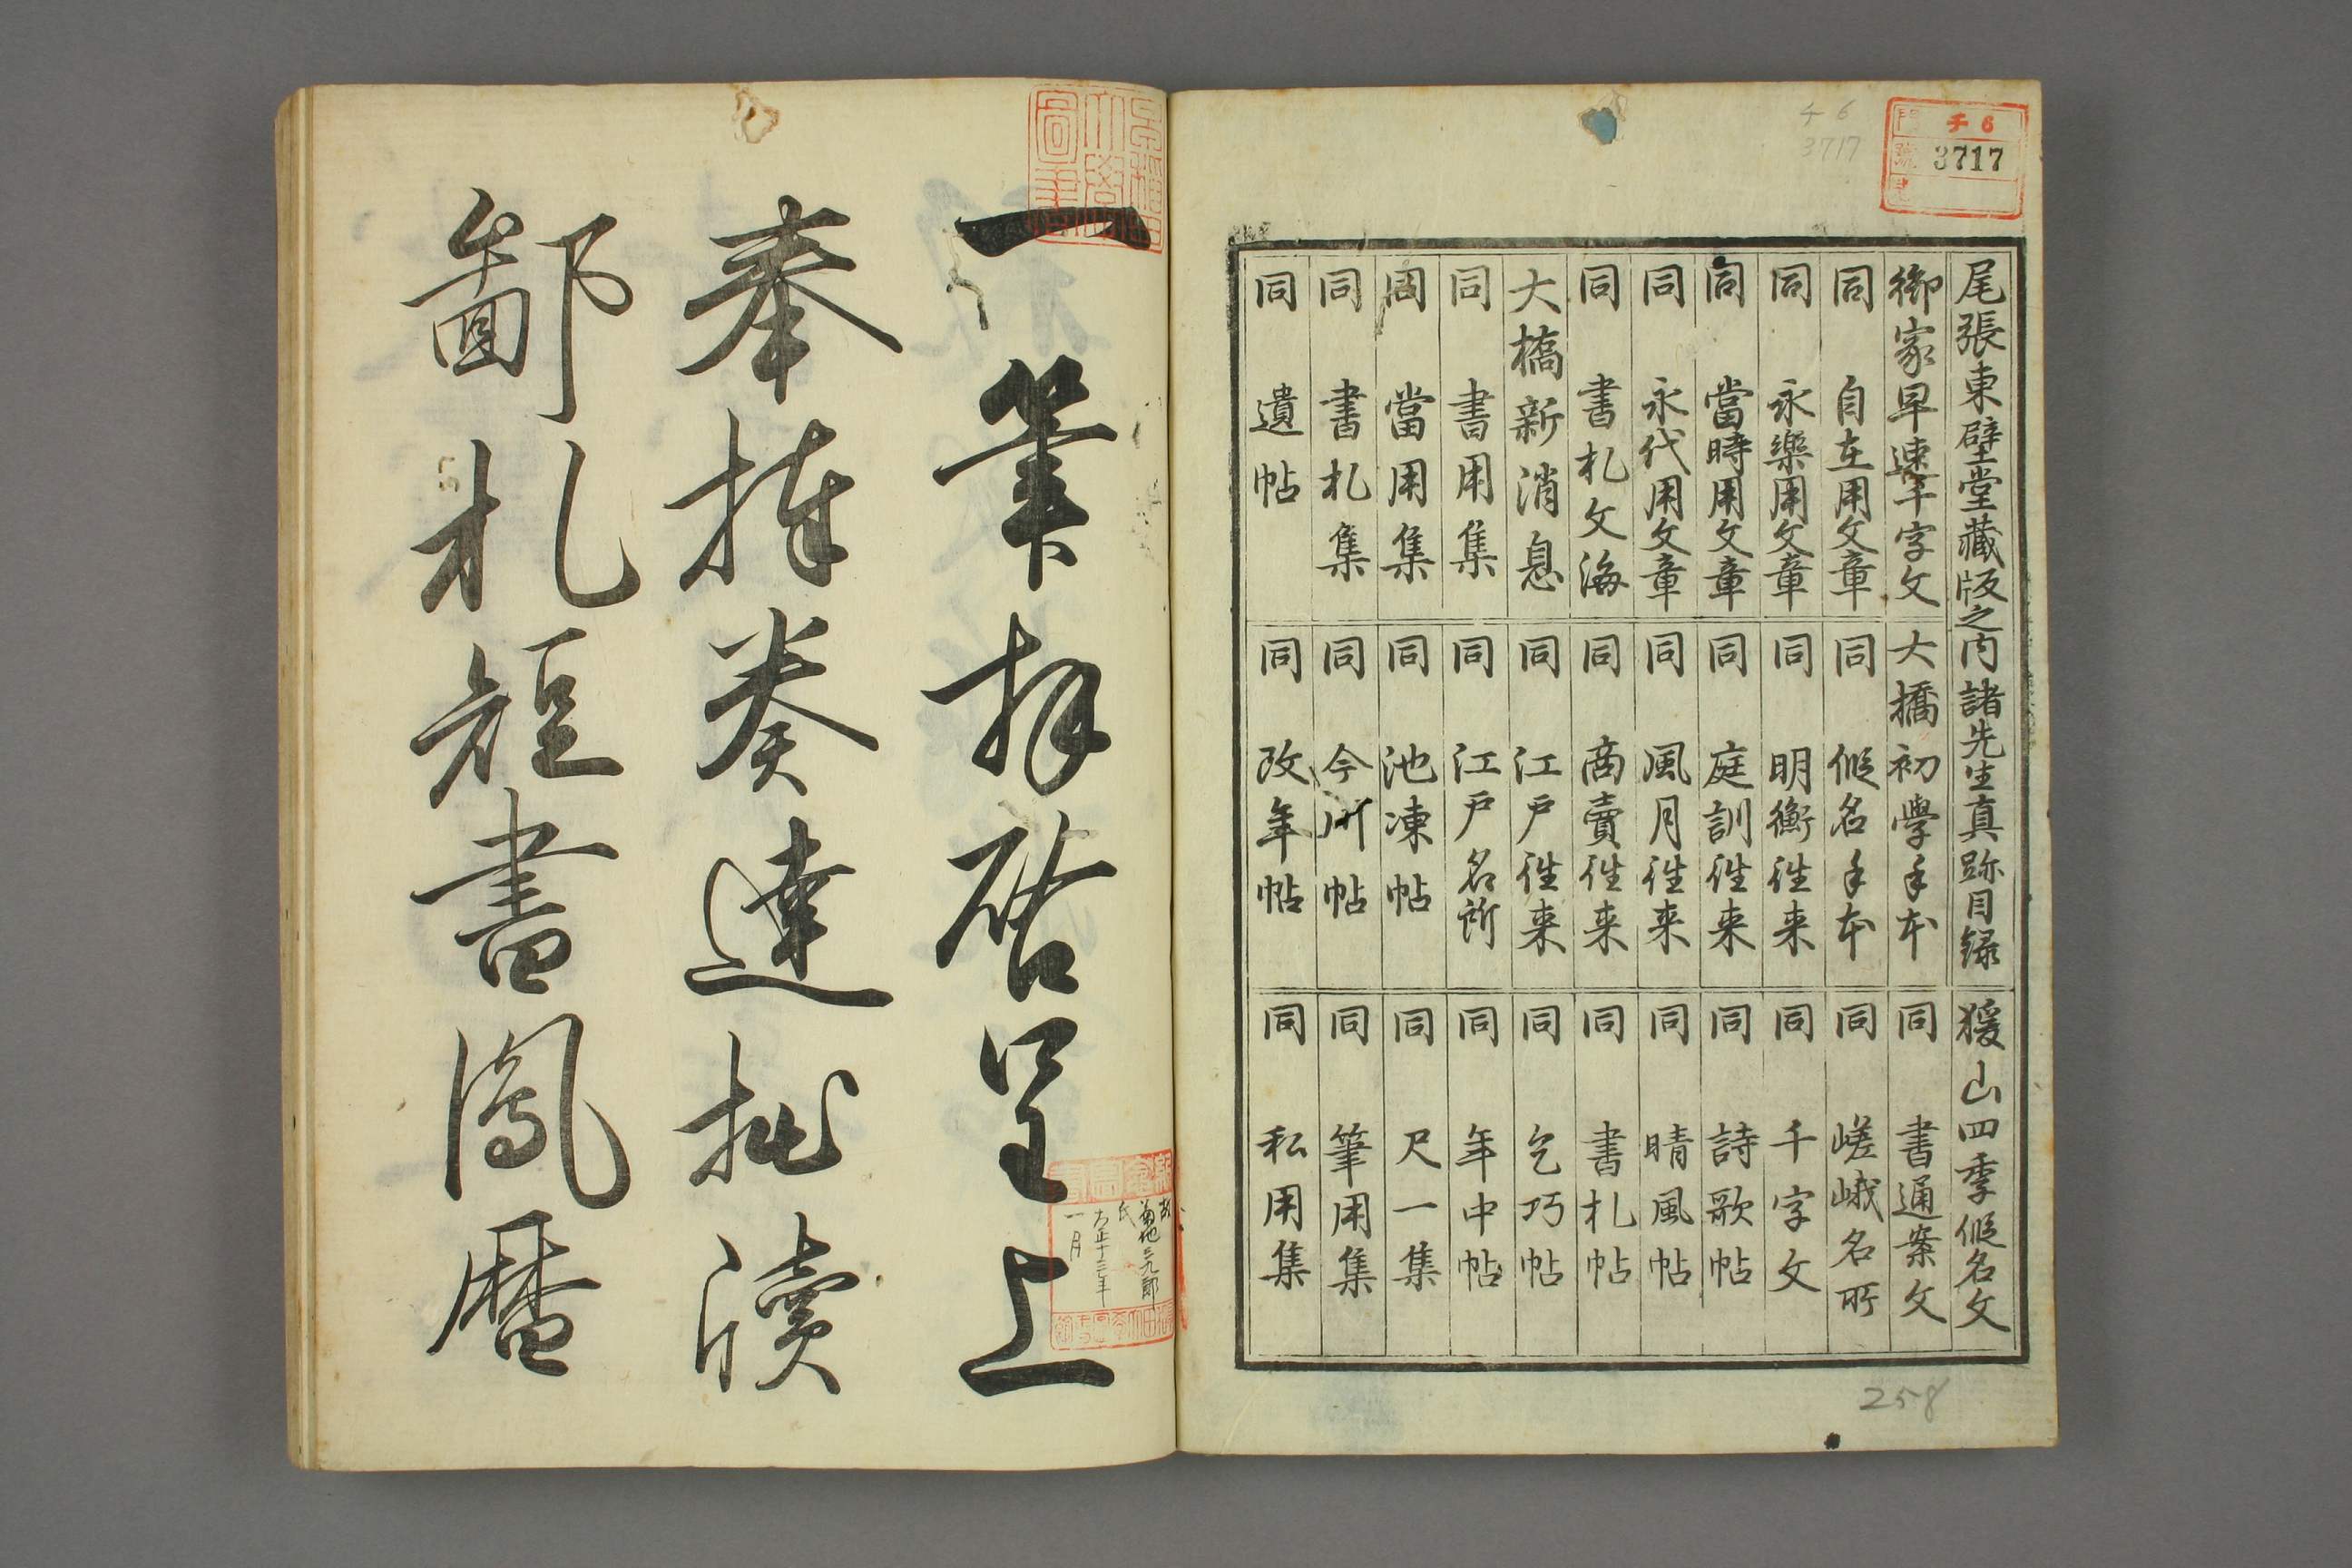 チ6
3717
チ 6
3717
尾張東壁堂藏版之内諸先生真跡目録
御家早速千字文
同 自在用文章
同 永樂用文章
同 當時用文章
同 永代用文章
同 書札文海
大橋新消息
同 書用集
同 當用集
同 書札集
同 遺帖
大橋初學手本
同 假名手本
同 明衡往来
同 庭訓往来
同 風月往来
同 商賣往来
同 江戸往来
同 江戸名所
同 池凍帖
同 今川帖
同 改年帖
猨山四季假名文
同 書通案文
同 嵯峨名所
同 千字文
同 詩歌帖
同 晴風帖
同 書札帖
同 乞巧帖
同 年中帖
同 尺一集
同 筆用集
同 私用集
258
一筆拝啓呈上
奉捧奏達批牘
鄙札短書鳳暦
氏
大正十三年
一月